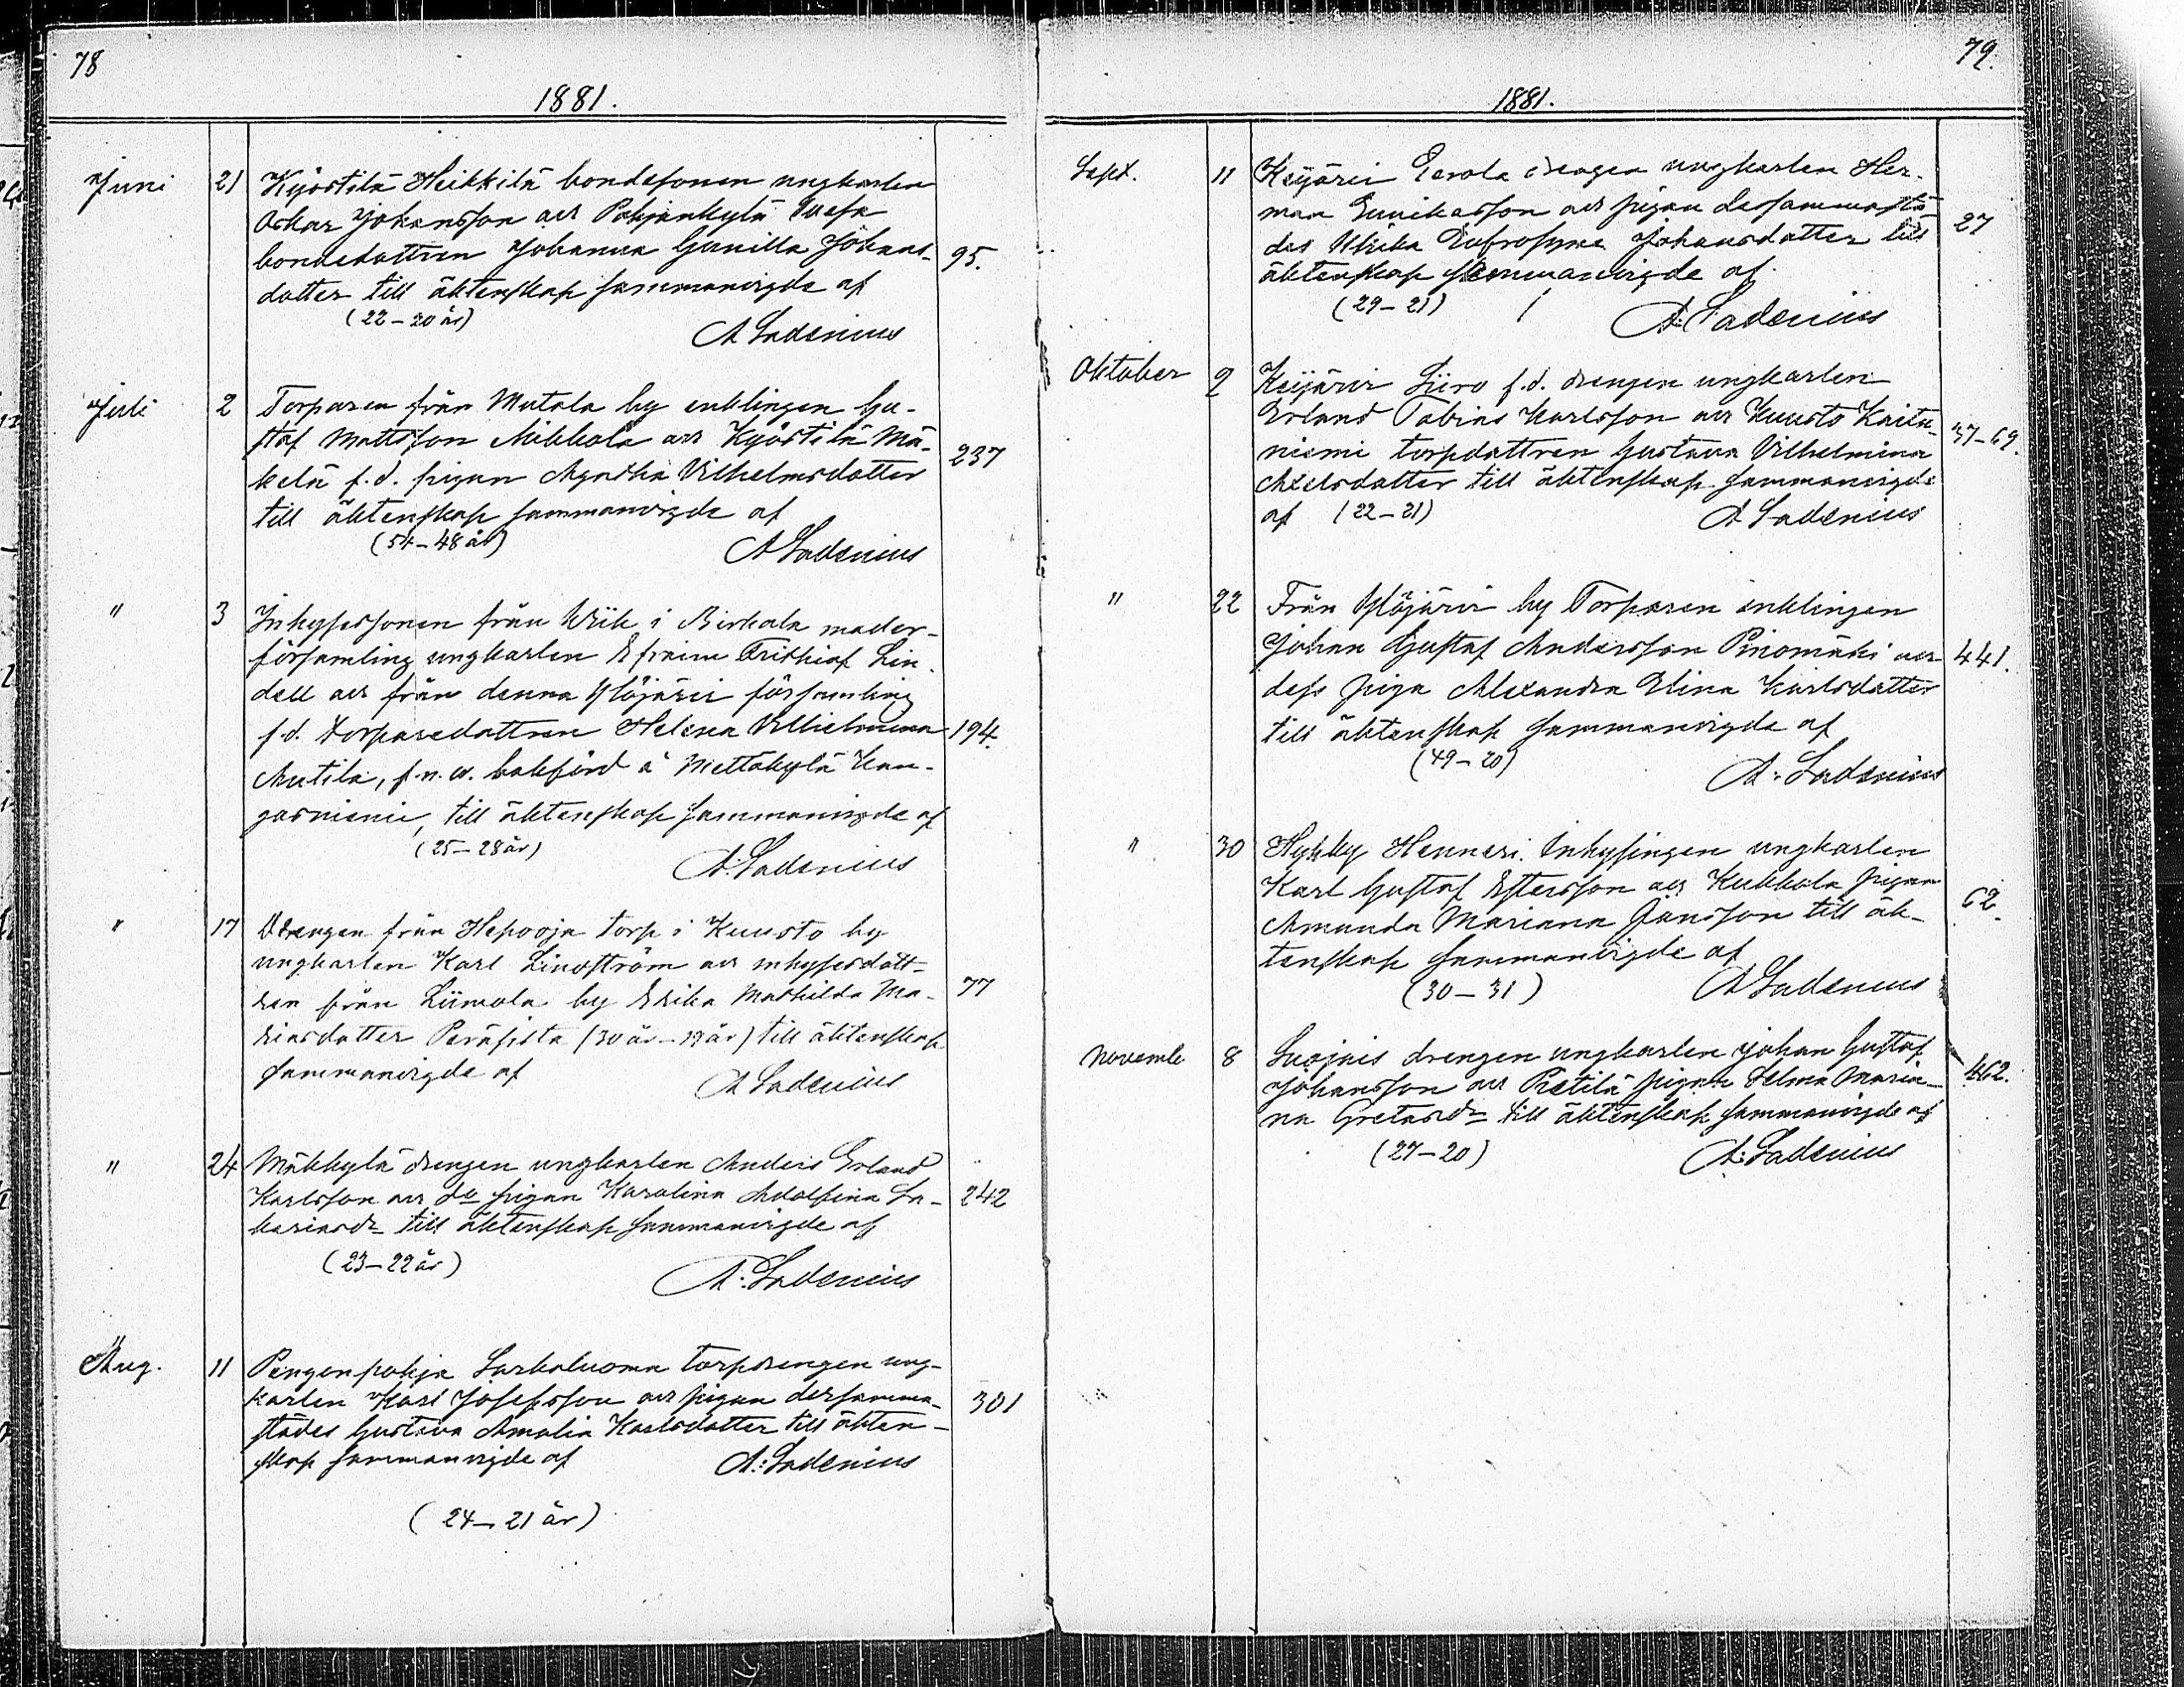 78
1881.
Juni 21 Kyöstilä Heikkilä bondesonen ungkarlen
Oskar Johansson och Pohjankylä
bondedottren Johanna Gunilla Johans- 95.
dotter till äktenskap sammanvigde af
(22-20 år)
A Ladenius
Juli 2 Torparen från Mutala by enklingen Gu-
staf Mattsson Mikkola och Kyöstilä Mä-
kelä f.d. pigan Agatha Vilhelmsdotter 237
till äktenskap sammanvigde af
(54-48 år)
A Ladenius
" 3 Inhysessonen från Wiik i Birkala moder-
församling ungkarlen Efraim Frithiof Lin-
dell och från denna Ylöjärvi församling
f.d. torparedottren Helena Vilhelmina 194.
Mutila, f.n.w. bokförd å Mettäkylä Kan-
gasniemi, till äktenskap sammanvigde af
(25-28 år)
A. Ladenius
" 17 Drengen från Hepooja torp i Kuusto by
ungkarlen Karl Lindström och inhysesdott-
ren från Liimola by Erika Mathilda Ma- 77
dotter (30 år-19 år) till äktenskap
sammanvigde af
A Ladenius
" 24 Mäkkylä drengen ungkarlen Anders Erland
Karlsson och do pigan Karolina Adolfina Sa- 242
kariasdr till äktenskap sammanvigde af
(23-22 år)
A. Ladenius
Aug. 11 Pengonpohja Sarkaluoma torpdrengen ung-
karlen Karl Josefsson och pigan dersamma- 301
städes Gustava Amalia Karlsdotter till äkten-
skap sammanvigde af A. Ladenius
(24-21 år)
79.
1881.
Sept. 11 Keijärvi Eerola drengen ungkarlen Her-
man Eriikasson och pigan dersammastä- 27
des Ulrika Eufrosyne Johansdotter till
äktenskap sammanvigde af
(29-21)
A. Ladenius
Oktober 9 Keijärvi Siiro f.d. drengen ungkarlen
Erland Tobias Karlsson och Kuusto Kaita- 37-69.
niemi torpdottren Gustava Vilhelmina
Axelsdotter till äktenskap sammanvigde
af (22-21) A Ladenius
" 22 Från Ylöjärvi by Torparen enklingen
Johan Gustaf Andersson Pinomäki och 441.
dess piga Alexandra Elina Karlsdotter
till äktenskap sammanvigde af
(49-20)
A. Ladenius
" 30 Hyhky Henneri Inhysingen ungkarlen
Karl Gustaf Estersson och Kukkola pigan 62.
Amanda Mariana Jansson till äk-
tenskap sammanvigde af
(30-31) A Ladenius
Novemb 8 drengen ungkarlen Johan Gustaf
Johansson och Pietilä pigan Selma Maria- 462.
na Gretasdr till äktenskap sammanvigde af
(27-20) A. Ladenius